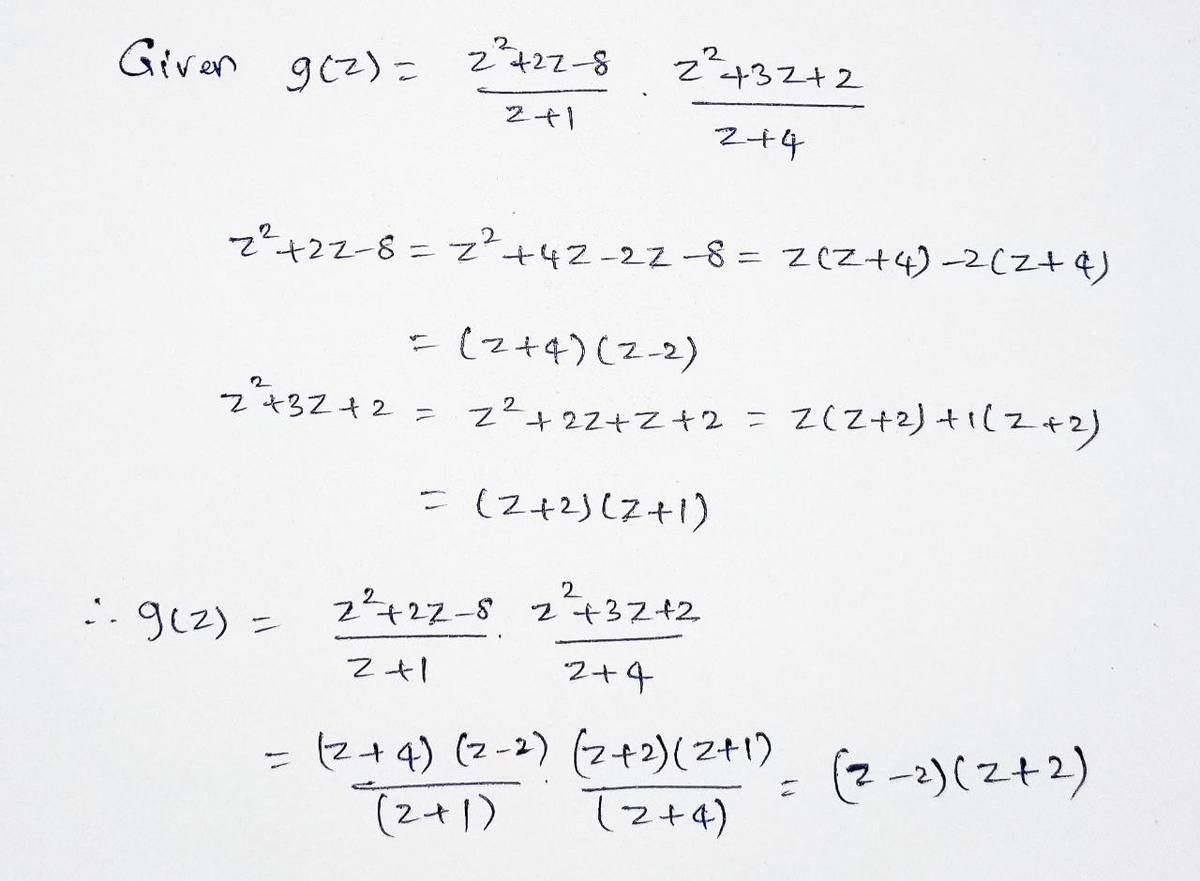 Given g(z) = \frac{z^2+2z-8}{z+1} \cdot \frac{z^2+3z+2}{z+4}
z^2+2z-8 = z^2+4z-2z-8 = z(z+4)-2(z+4)
= (z+4)(z-2)
z^2+3z+2 = z^2+2z+z+2 = z(z+2)+1(z+2)
= (z+2)(z+1)
∴ g(z) = \frac{z^2+2z-8}{z+1} \cdot \frac{z^2+3z+2}{z+4}
= \frac{(z+4)(z-2)}{(z+1)} \cdot \frac{(z+2)(z+1)}{(z+4)} = (z-2)(z+2)